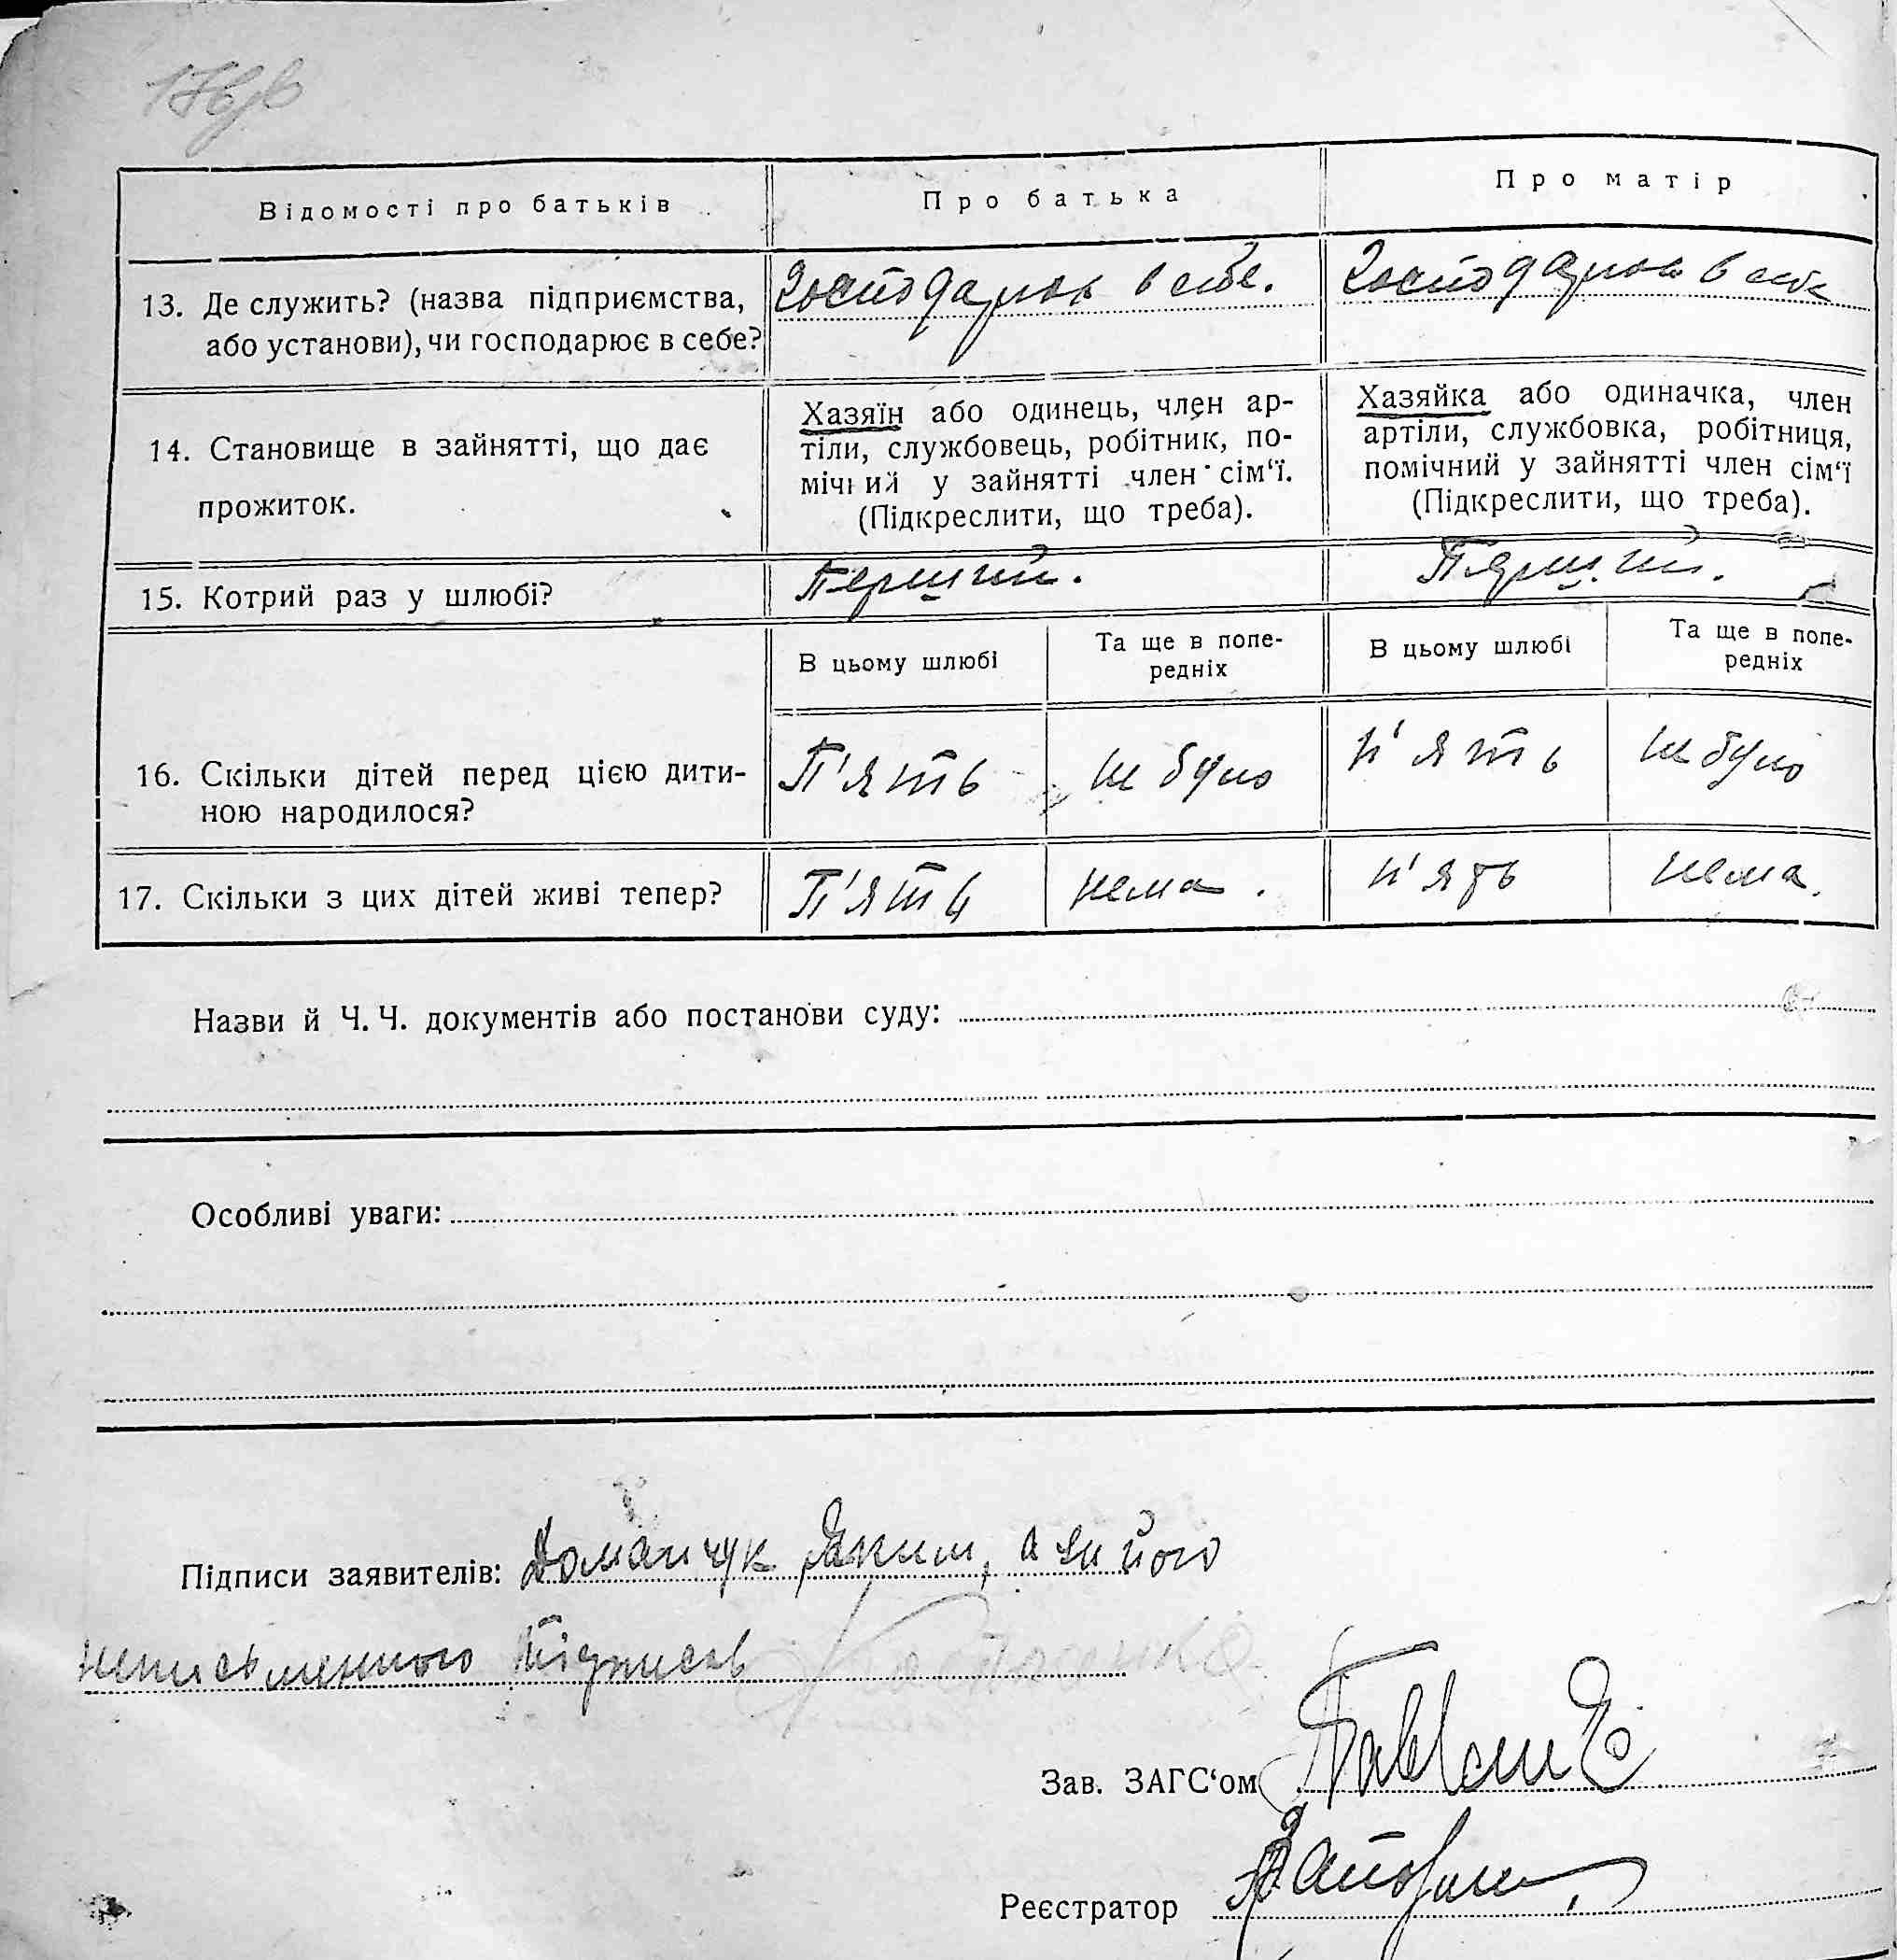 Відомості про батьків
Про батька
Про матір
13. Де служить? (назва підприємства,
або установи), чи господарює в себе?
Господарює в себе.
Господарює в себе
14. Становище в зайнятті, що дає
прожиток.
Хазяїн або одинець, член ар-
тіли, службовець, робітник, по-
мічний у зайнятті член сім‘ї.
(Підкреслити, що треба).
Хазяйка або одиначка, член
артіли, службовка, робітниця,
помічний у зайнятті член сім‘ї
(Підкреслити, що треба).
15. Котрий раз у шлюбі?
Перший.
Перший.
В цьому шлюбі
Та ще в попе-
редніх
В цьому шлюбі
Та ще в попе-
редніх
16. Скільки дітей перед цією дити-
ною народилося?
П'ять
не було
п'ять
не було
17. Скільки з цих дітей живі тепер?
П'ять
нема.
п'ять
нема.
Назви й Ч. Ч. документів або постанови суду:
Особливі уваги:
Підписи заявителів: Доманчук Яким, а за його
неписьменного підписав
Зав. ЗАГС‘ом
Реєстратор